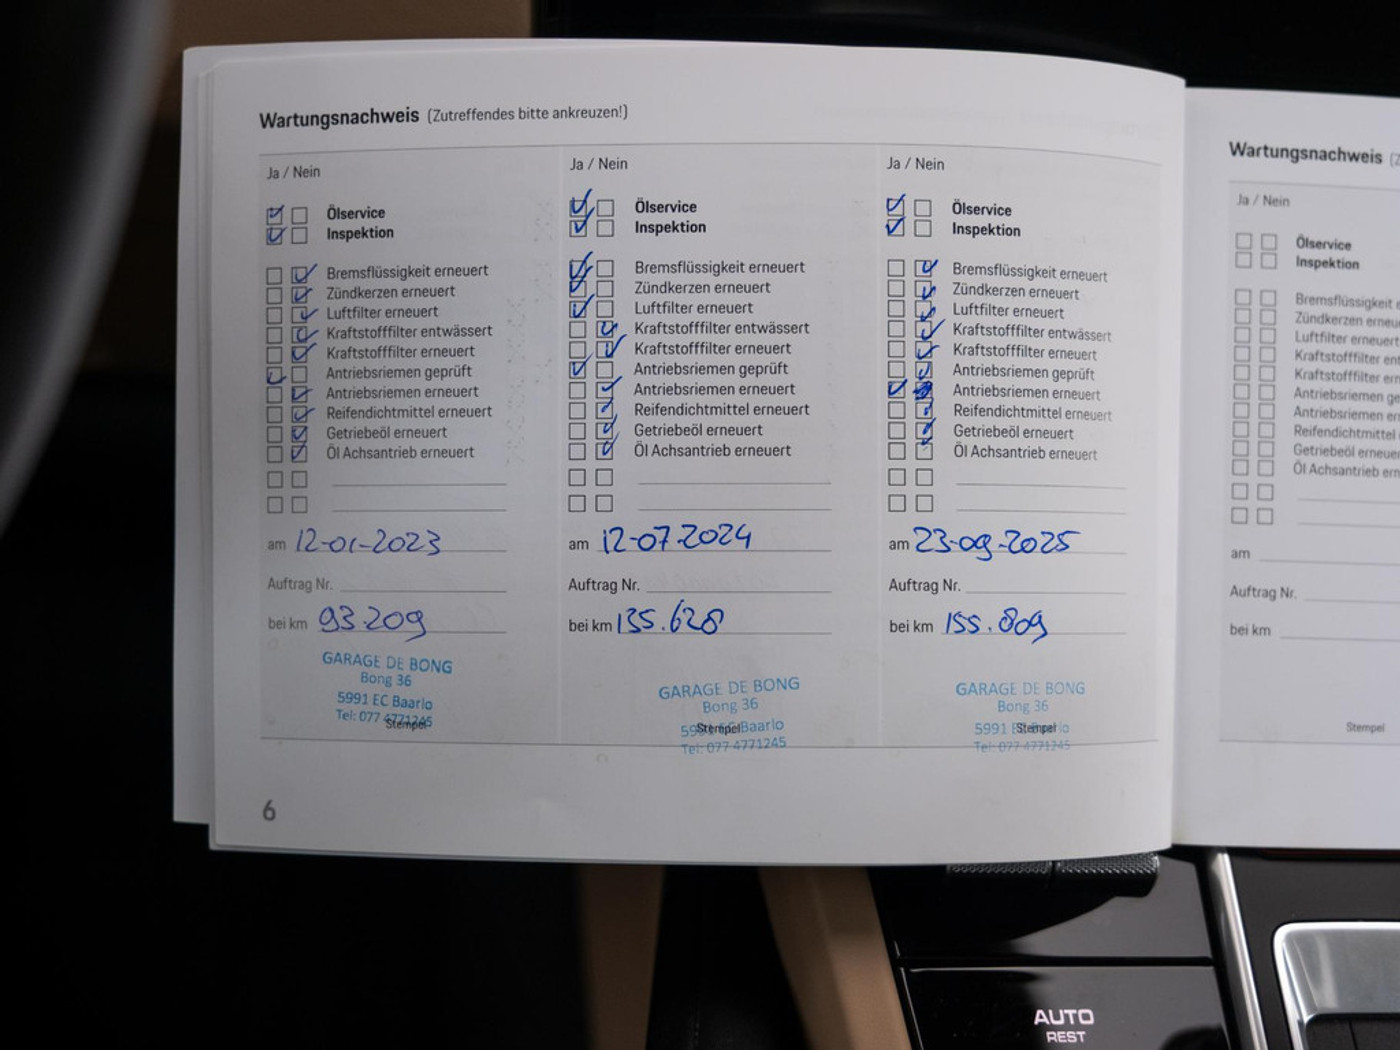 Wartungsnachweis (Zutreffendes bitte ankreuzen!)
Ja / Nein
Ölservice
Inspektion
Bremsflüssigkeit erneuert
Zündkerzen erneuert
Luftfilter erneuert
Kraftstofffilter entwässert
Kraftstofffilter erneuert
Antriebsriemen geprüft
Antriebsriemen erneuert
Reifendichtmittel erneuert
Getriebeöl erneuert
Öl Achsantrieb erneuert
am 12-01-2023
Auftrag Nr.
bei km 93.209
GARAGE DE BONG
Bong 36
5991 EC Baarlo
Tel: 077 4771245
Stempel
Ja / Nein
Ölservice
Inspektion
Bremsflüssigkeit erneuert
Zündkerzen erneuert
Luftfilter erneuert
Kraftstofffilter entwässert
Kraftstofffilter erneuert
Antriebsriemen geprüft
Antriebsriemen erneuert
Reifendichtmittel erneuert
Getriebeöl erneuert
Öl Achsantrieb erneuert
am 12-07-2024
Auftrag Nr.
bei km 135.628
GARAGE DE BONG
Bong 36
5991 EC Baarlo
Stempel
Tel: 077 4771245
Ja / Nein
Ölservice
Inspektion
Bremsflüssigkeit erneuert
Zündkerzen erneuert
Luftfilter erneuert
Kraftstofffilter entwässert
Kraftstofffilter erneuert
Antriebsriemen geprüft
Antriebsriemen erneuert
Reifendichtmittel erneuert
Getriebeöl erneuert
Öl Achsantrieb erneuert
am 23-09-2025
Auftrag Nr.
bei km 155.809
GARAGE DE BONG
Bong 36
5991 EC Baarlo
Stempel
Tel: 077 4771245
6
Wartungsnachweis (Z
Ja / Nein
Ölservice
Inspektion
Bremsflüssigkeit e
Zündkerzen erneu
Luftfilter erneuert
Kraftstofffilter ent
Kraftstofffilter ern
Antriebsriemen ge
Antriebsriemen ern
Reifendichtmittel er
Getriebeöl erneuer
Öl Achsantrieb ern
am
Auftrag Nr.
bei km
Stempel
AUTO
REST